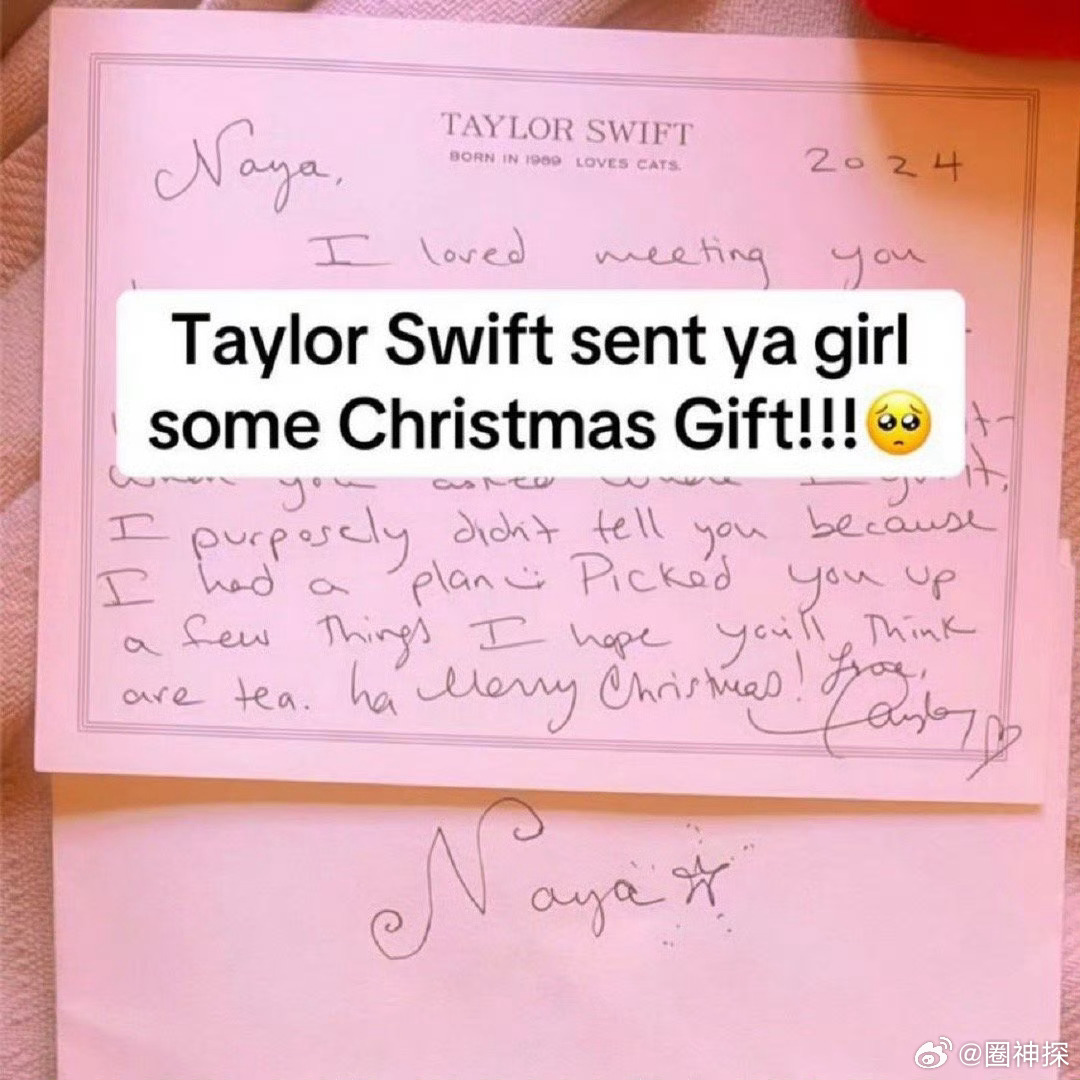 TAYLOR SWIFT
BORN IN 1989 LOVES CATS.
2024
Naya,
I loved meeting you
Taylor Swift sent ya girl
some Christmas Gift!!!🥺
when you asked where I
I purposely didn't tell you because
I had a plan :) Picked you up
a few things I hope you'll think
are tea. ha Merry Christmas! Love,
Taylor ♡
Naya ☆
@圈神探